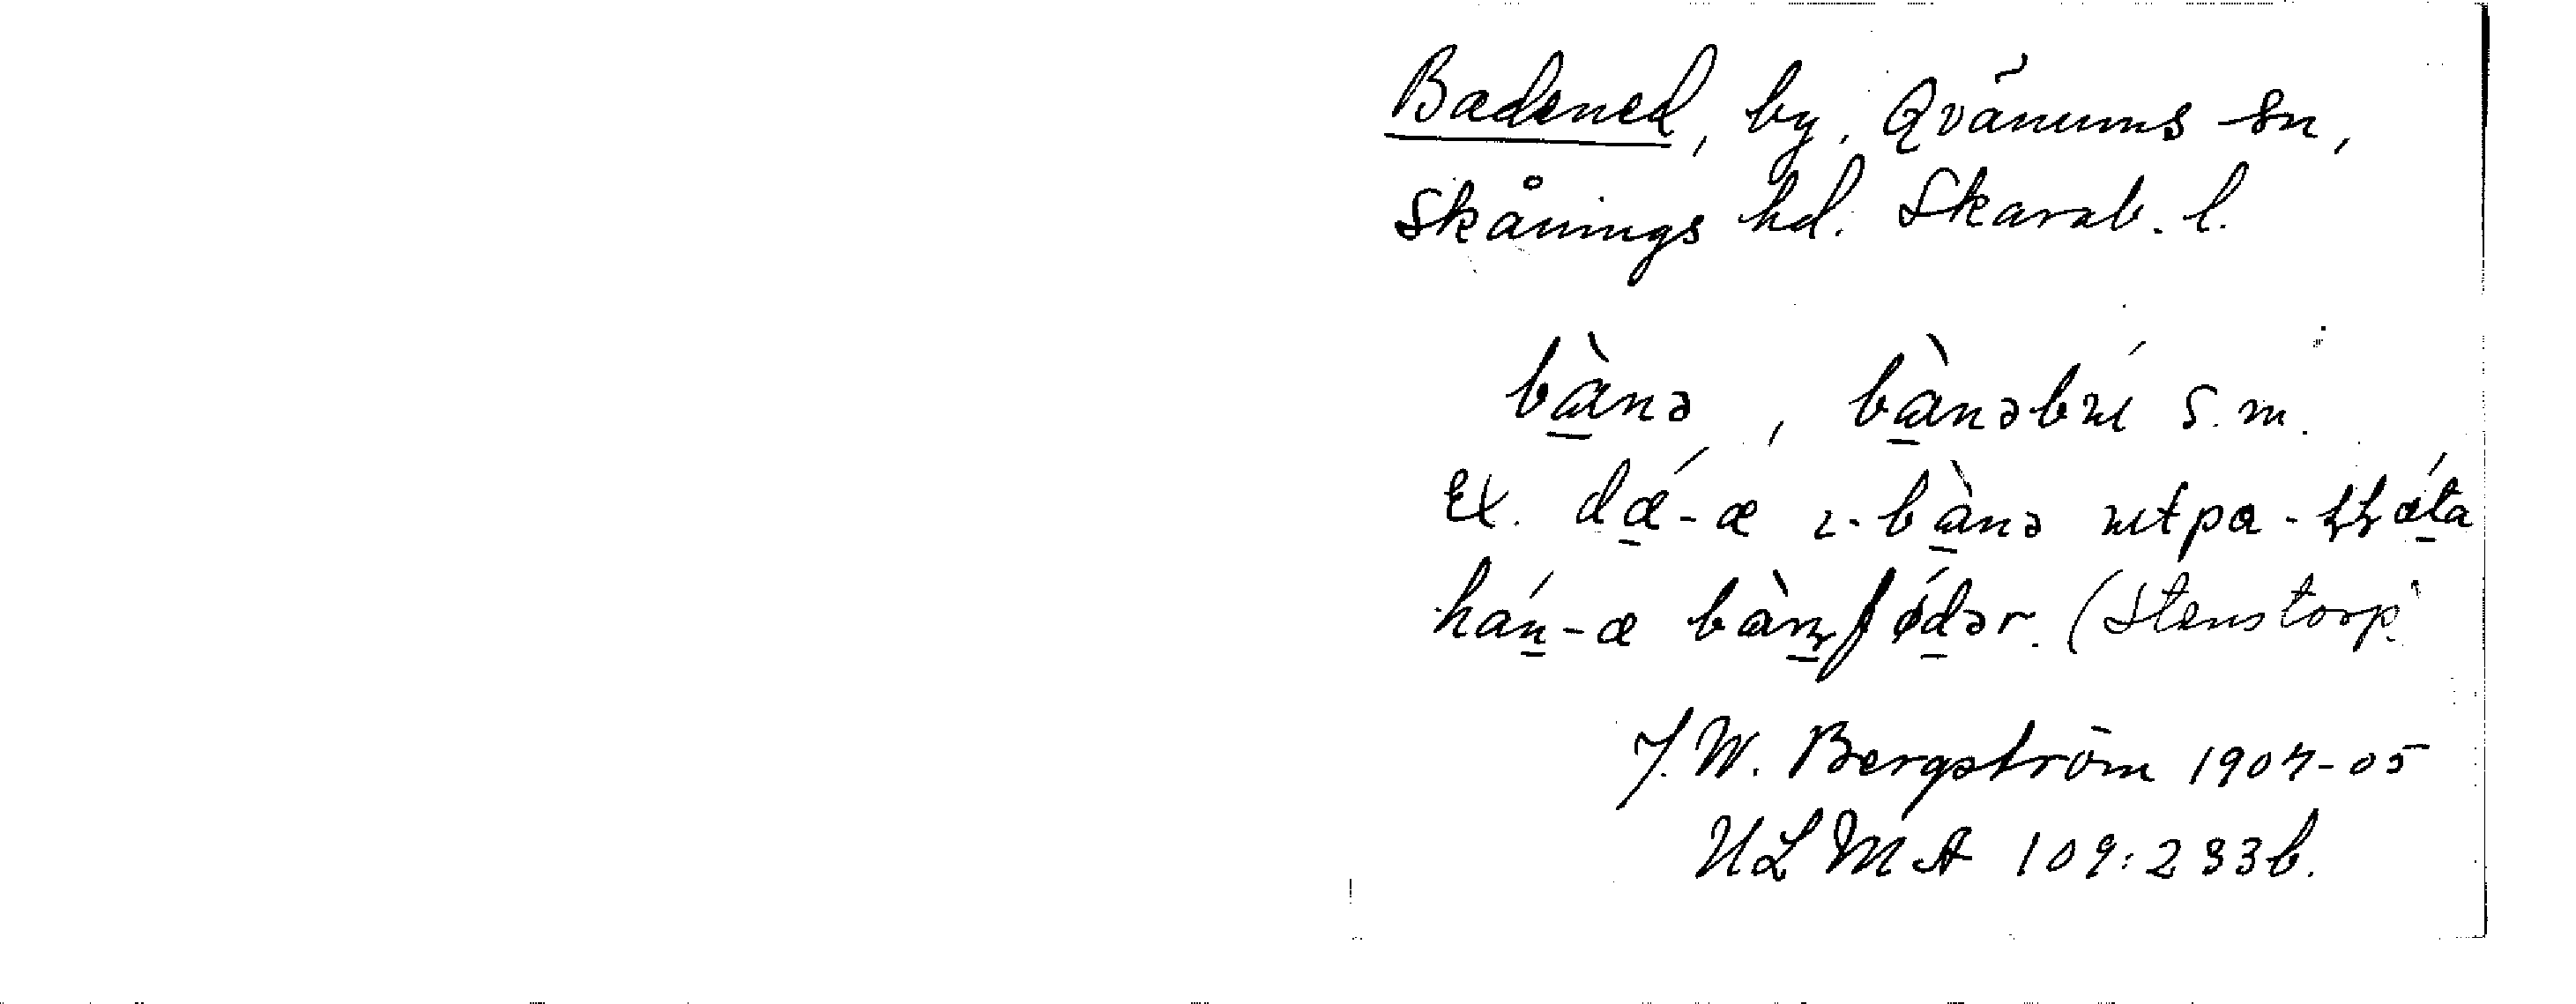 Badened, by, Qvänums sn,
Skånings hd. Skarab. l.
bànə, bànəbɯ́ s.m.
Ex. dǽ-æ ɩ-bànə ɯtpa-
hán-æ (Stenstorp)
J. W. Bergström 1904-05
ULMA 109:233b.